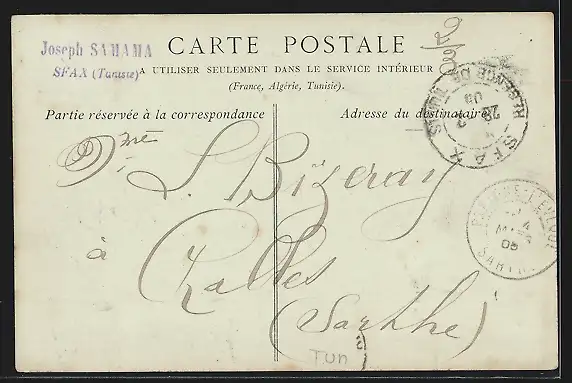 Joseph SAMAMA
SFAX (Tunisie)
CARTE POSTALE
A UTILISER SEULEMENT DANS LE SERVICE INTÉRIEUR
(France, Algérie, Tunisie).
Partie réservée à la correspondance
Adresse du destinataire
SFAX
05
Mme L. Bizeray
4
05
à
(Sarthe)
Tun